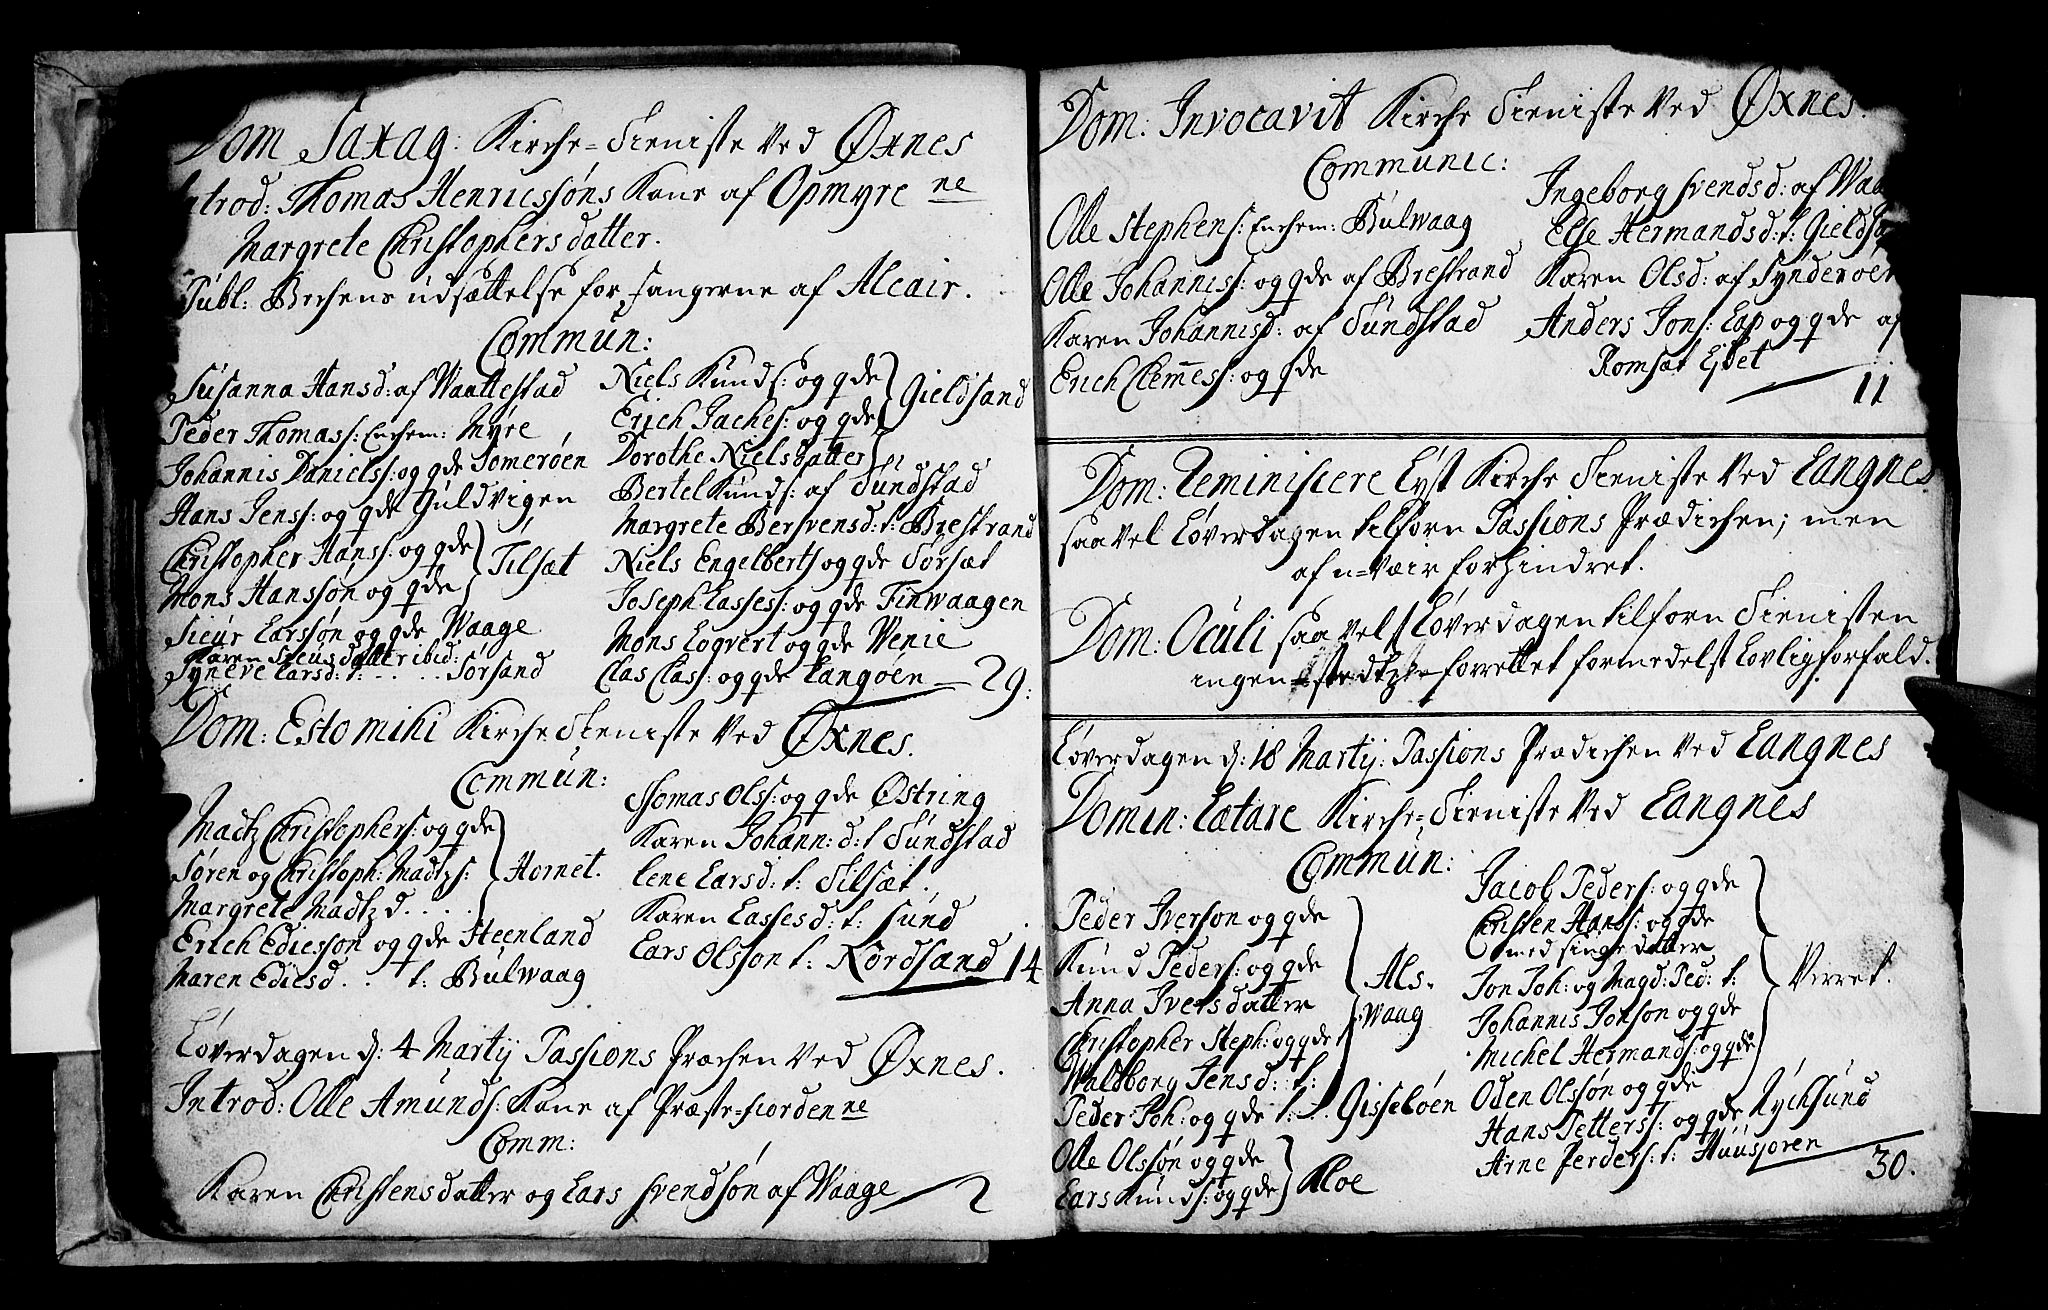 Dom Saxag: Kirche-Tieniste Ved Øxnes
Introd: Thomas Henricssøns Kone af Opmyrene
Margrete Christophersdatter.
Publ: Bechens udsættelse for fangerne af Alcair.
Commun:
Susanna Hansd: af Waattestad
Peder Thomass: Enchem: Myre
Johannis Daniels: og qde Somerøen
Hans Jenss: og qde Guldvigen
Christopher Hanss: og qde } Tilsæt
Mons Hanssøn og qde
Sieur Larssøn og qde Waage
Karen Sieursdatter ibid:
Syneve Larsd: t: - - . . . Sørsand
Niels Kunds: og qde } Gieldsand
Erich Jaches: og qde
Dorothe Nielsdatter
Bertel Kunds: af Sundstad
Margrete Bersvensd: t: Brestrand
Niels Engelberts og qde Sørsæt
Joseph Lasses: og qde Finwaagen
Mons Logvert og qde Wenie
Clas Clas: og qde Langøen — 29:
Dom: Estomihi Kirche Tieniste Ved Øxnes.
Commun:
Madtz Christophers: og qde
Søren og Christoph: Madtzs: } Hornet.
Margrete Madtzd . . . .
Erich Ediessøn og qde Steenland
Maren Ediesd . . t: Bulwaag
Thomas Olss: og qde Østring
Karen Johann: d: t Sundstad
Lene Larsd: t: Tilsæt.
Karen Lassesd: t: Sund
Lars Olsson t: Nordsand 14
Løverdagen d: 4 Martij Passions Præchen Ved Øxnes.
Introd: Olle Amunds: Kone af Præste-fiordenne
Comm:
Karen Christensdatter og Lars Svendsøn af Waage — 2
Dom: Invocavit Kirche Tieniste Ved Øxnes.
Communic:
Olle Stephens: Enchem: Bulwaag
Olle Johanniss: og qde af Brestrand
Karen Johannisd: af Sundstad
Erich Clemess: og qde
Ingeborg Svendsd: af Waa
Else Hermandsd: t: Gieldsa
Karen Olsd: af Synderøen
Anders Jons: Lap og qde af
Romsæt Ejdet
11
Dom: Reminiscere Lyst Kirche Tieniste Ved Langnes
saavel Løverdagen tilforn Passions Prædichen; men
af u-væir forhindret.
Dom: Oculi saavelſ Løverdagen tilforn Tienisten
ingensteds forrettet formedelst Lovlig forfald.
Løverdagen d: 18 Martij: Passions Prædichen Ved Langnes
Domin: Lætare Kirche-Tieniste Ved Langnes
Commun:
Peder Iverson og qde
Kund Peders: og qde
Anna Iversdatter
Christopher Steph: og qde } Als-Waag
Waldborg Jensd: t:
Peder Joh: og qde t: . Gisseløen
Olle Olssøn og qde } Kloe
Lars Kunds: og qde
Jacob Peders: og qde
Christen Hanss: og qde
med singe datter
Jon Joh: og Magd: Ped: t: } Virret.
Johannis Jonson og qde
Michel Hermands: og qde
Oden Olssøn og qde
Hans Petterss: og qde Nycksund
Arne Perders: t: Huusøren
30.